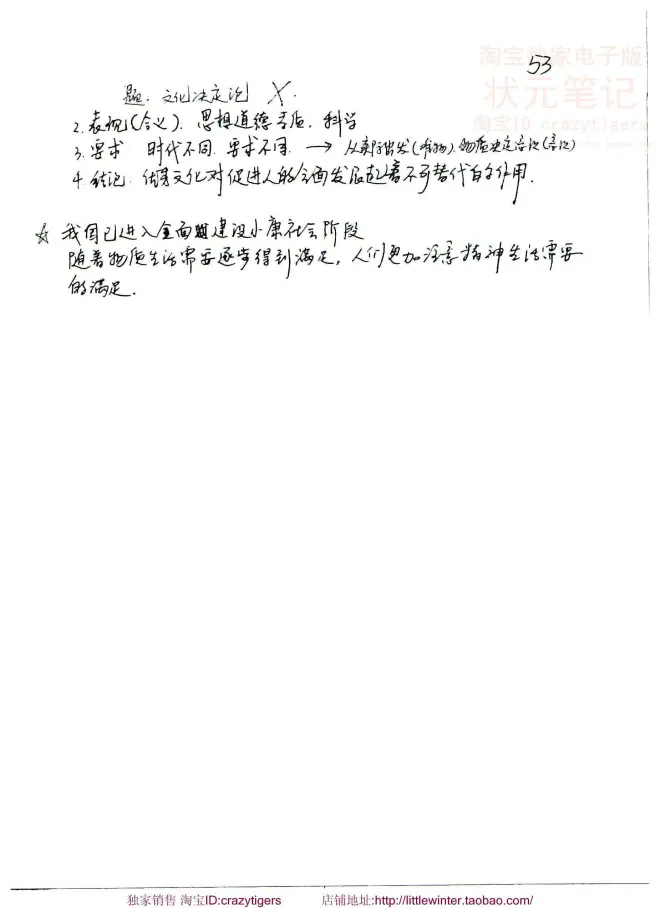 53
淘宝独家电子版
状元笔记
淘宝ID crazytigers
题:文化决定论 ╳.
2.表现(含义). 思想道德素质. 科学
3.要求 时代不同.要求不同. → 从实际出发(唯物).物质决定意识(意识)
4.结论. 优秀文化对促进人的全面发展起着不可替代的作用.
☆ 我国已进入全面建设小康社会阶段
随着物质生活需要逐步得到满足,人们更加注意精神生活需要
的满足.
独家销售 淘宝ID:crazytigers 店铺地址:http://littlewinter.taobao.com/